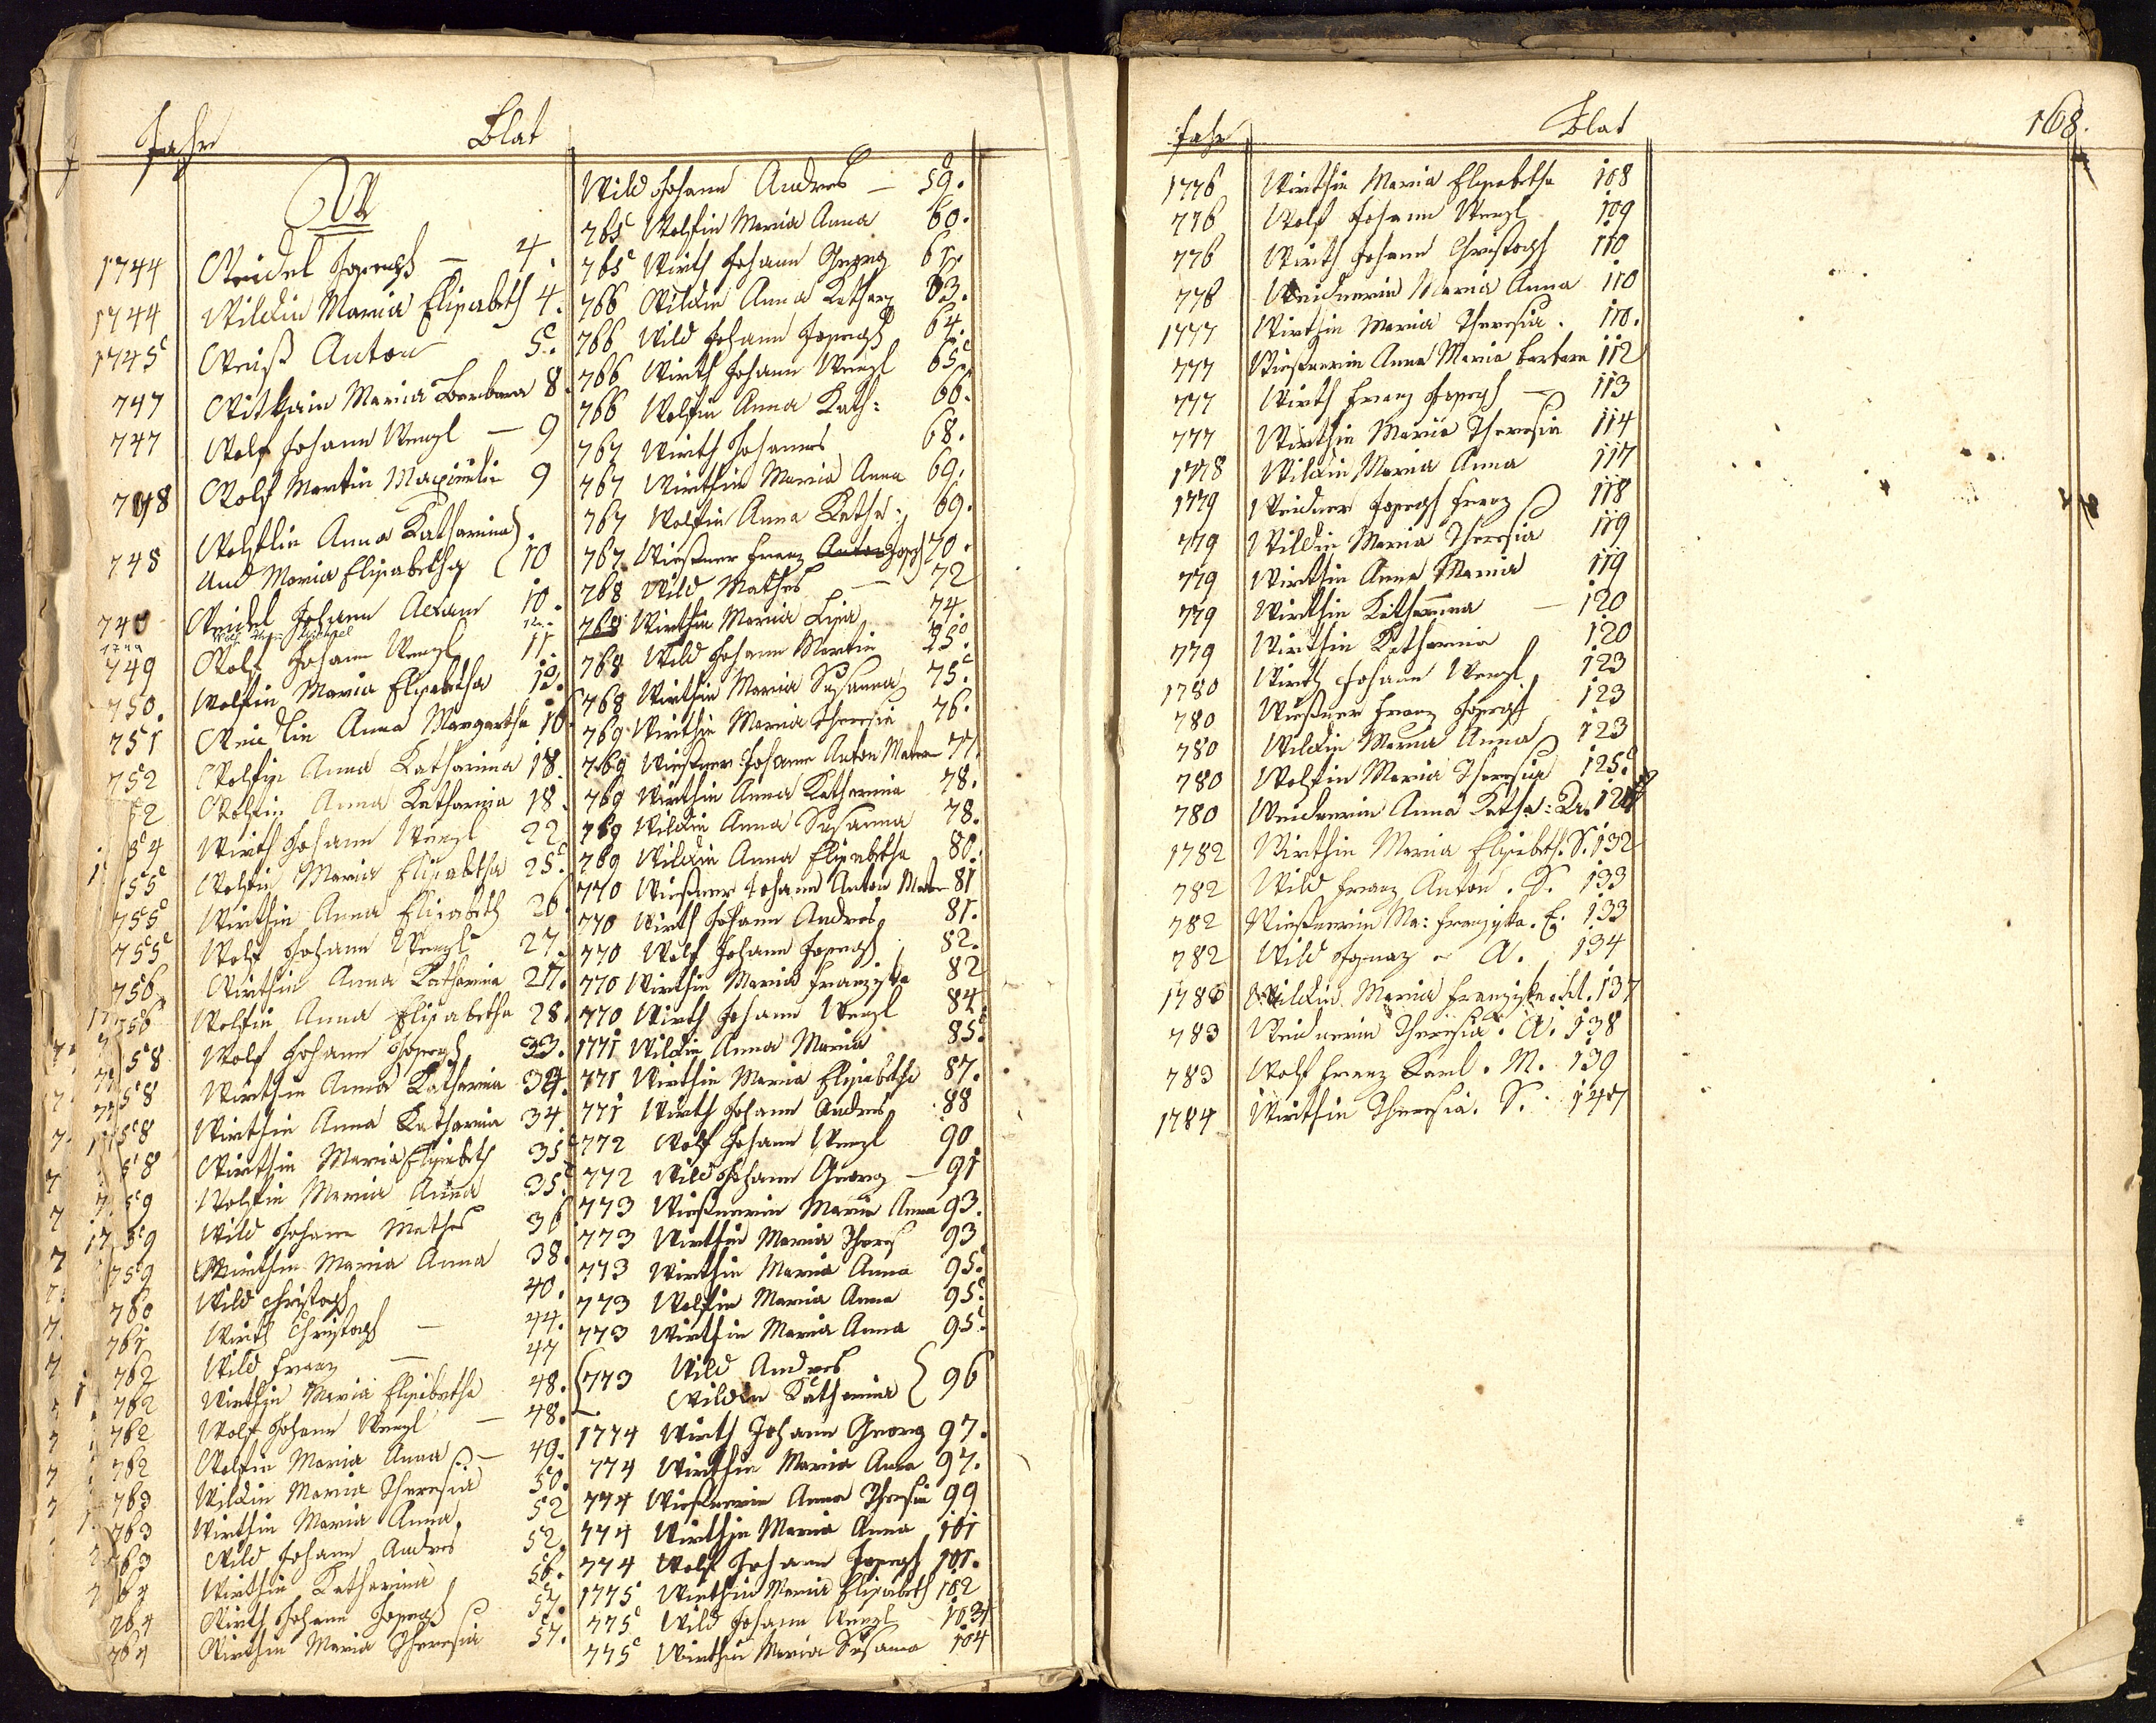 Jahr Blat
W
1744 Weidel Joseph — 4.
1744 Wildin Maria Elisabeth 4.
1745 Weiß Anton 5.
747 Maria Barbara 8.
747 Wolf Johann Wenzl — 9
748 Wolf Martin 9
748 Anna Katharina
Und Maria Elisabetha 10
Weidel Johann Adam 10.
12.
749 Wolf Johann Wenzl 11.
750. Wolfin Maria Elisabetha 13.
751 Anna Margaretha 16
752 Wolfin Anna Katharina 18.
52 Wolfin Anna Katharina 18.
54 Wirth Johann Wenzl 22
55 Wolfin Maria Elisabetha 25.
755 Wirthin Anna Elisabeth 26.
755 Wolf Johann Wenzl 27.
756 Wirthin Anna Katharina 27.
756 Wolfin Anna Elisabetha 28.
58 Wolf Johann Joseph 33.
58 Wirthin Anna Katharina 34.
58 Wirthin Anna Katharina 34
58 Wirthin Maria Elisabeth 35
59 Wolfin Maria Anna 35.
59 Wild Johann Mathes 36
759 Wirthin Maria Anna 38.
760 Wild Christoph 40.
761 Wirth Christoph — 44.
762 Wild Franz — 47
762 Wirthin Maria Elisabetha 48.
762 Wolf Johann Wenzl — 48.
762 Wolfin Maria Anna — 49.
763 Wildin Maria Theresia 50.
763 Wirthin Maria Anna 52
763 Wild Johann Andres 52.
64 Wirthin Katharina 56.
764 Wirth Johann Joseph 57.
764 Wirthin Maria Theresia 57.
Wild Johann Andres — 59.
765 Wolfin Maria Anna 60.
765 Wirth Johann Georg 61.
766 Wildin Anna Kathar 63.
766 Wild Johann Joseph 64.
766 Wirth Johann Wenzl 65.
766 Wolfin Anna Kath: 66.
767 Wirth Johannes 68.
767 Wirthin Maria Anna 69.
767 Wolfin Anna Katha: 69.
767 Wießner Franz Anton Joseph 70.
768 Wild Mathes — 72
768 Wirthin Maria Lisa 74.
768 Wild Johann Martin 75.
768 Wirthin Maria Susanna 75.
769 Wirthin Maria Theresia 76.
769 Wießner Johann Anton 77.
769 Wirthin Anna Katharina 78.
769 Wildin Anna Susanna 78.
769 Wildin Anna Elisabetha 80.
770 Wießner Johann Anton 81
770 Wirth Johann Andres 81.
770 Wolf Johann Joseph 82.
770 Wirthin Maria Franziska 82
770 Wirth Johann Wenzl 84
1771 Wildin Anna Maria 85.
771 Wirthin Maria Elisabetha 87.
771 Wirth Johann Andres 88
772 Wolf Johann Wenzl 90
772 Wild Johann Georg — 91
773 Wießnerin Maria Anna 93.
773 Wirthin Maria Theres 93
773 Wirthin Maria Anna 95.
773 Wolfin Maria Anna 95.
773 Wirthin Maria Anna 95.
773 Wild Andres
Wildin Katharina 96
1774 Wirth Johann Georg 97.
774 Wirthin Maria Anna 97.
774 Wießnerin Anna Theresia 99
774 Wirthin Maria Anna 101
774 Wolf Johann Joseph 101.
1775 Wirthin Maria Elisabeth 102
775 Wild Johann Wenzl 103
775 Wirthin Maria Susanna 104
Jahr Blat 168.
1776 Wirthin Maria Elisabetha 108
776 Wolf Johann Wenzl 109
776 Wirth Johann Christoph 110
776 Weidnerin Maria Anna 110
1777 Wirthin Maria Theresia. 110.
777 Wießnerin Anna Maria Barbara 112
777 Wirth Franz Joseph — 113
777 Wirthin Maria Theresia 114
1778 Wildin Maria Anna 117
1779 Weidner Joseph Franz 118
779 Wildin Maria Theresia 119
779 Wirthin Anna Maria 119
779 Wirthin Katharina — 120
779 Wirthin Katharina 120
1780 Wirth Johann Wenzl 123
780 Wießner Franz Joseph 123
780 Wildin Maria Anna 123
780 Wolfin Maria Theresia 125.
780 Weidnerin Anna Katha:
1782 Wirthin Maria Elisabeth. S. 132
782 Wild Franz Anton. S. 133
782 Wießnerin Ma: Franziska. E. 133
782 Wild Ignaz W. 134
1783 Wildin Maria Franziska 137
783 Weidnerin Theresia. W. 138
783 Wolf Franz Karl. M. 139
1784 Wirthin Theresia. S. 147